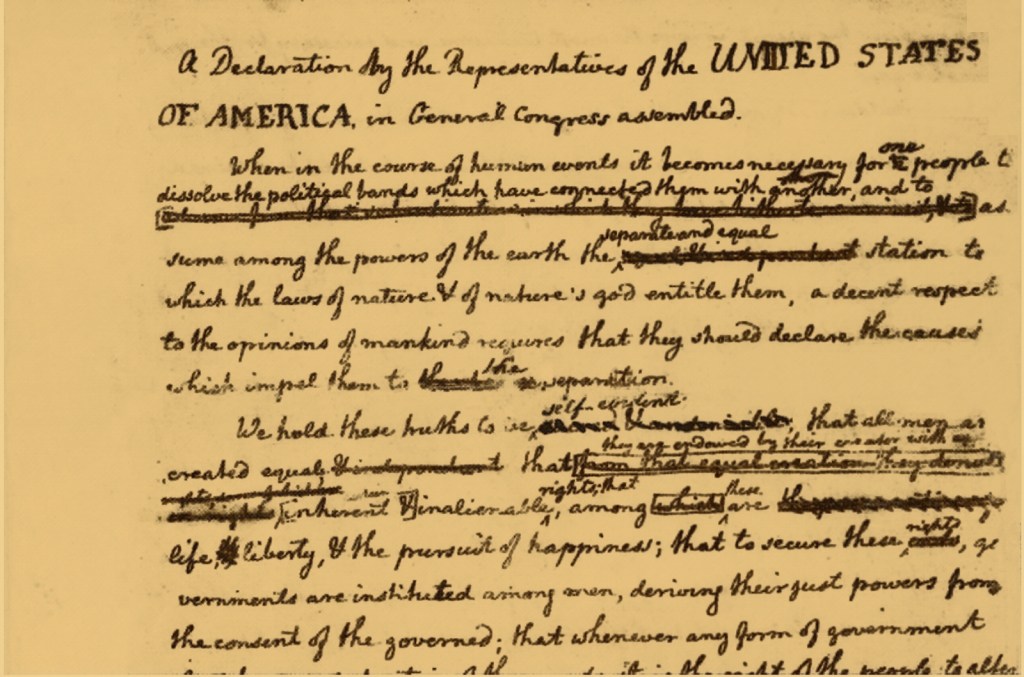 A Declaration by the Representatives of the UNITED STATES
OF AMERICA, in General Congress assembled.
one
When in the course of human events it becomes necessary for people t
dissolve the political bands which have connected them with another, and to
as
separate and equal
sume among the powers of the earth the station to
which the laws of nature & of nature's god entitle them, a decent respect
to the opinions of mankind requires that they should declare the causes
which impel them to the separation.
self-evident
We hold these truths to be, that all men ar
they are endowed by their creator with
created equal & independant that from that equal creation they
rights; that these
inherent & inalienable, among which are
rights
life, liberty, & the pursuit of happiness; that to secure these, go
vernments are instituted among men, deriving their just powers from
the consent of the governed; that whenever any form of government
it is the right of the people to alter